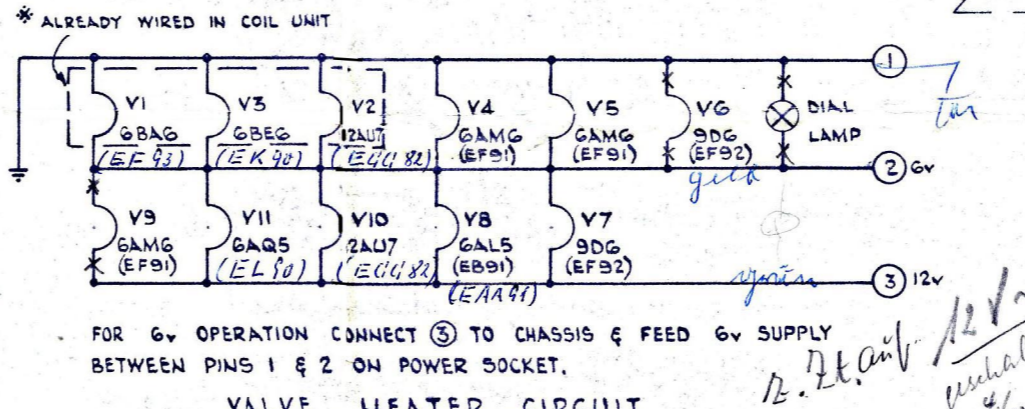 * ALREADY WIRED IN COIL UNIT
1
V1
6BA6
(EF93)
V3
6BE6
(EK90)
V2
12AU7
(ECC82)
V4
6AM6
(EF91)
V5
6AM6
(EF91)
V6
9D6
(EF92)
DIAL
LAMP
2 6v
gelb
V9
6AM6
(EF91)
V11
6AQ5
(EL90)
V10
2AU7
(ECC82)
V8
6AL5
(EB91)
(EAA91)
V7
9D6
(EF92)
grün
3 12v
FOR 6v OPERATION CONNECT 3 TO CHASSIS & FEED 6v SUPPLY
BETWEEN PINS 1 & 2 ON POWER SOCKET.
z. Zt. auf 12V~
VALVE HEATER CIRCUIT